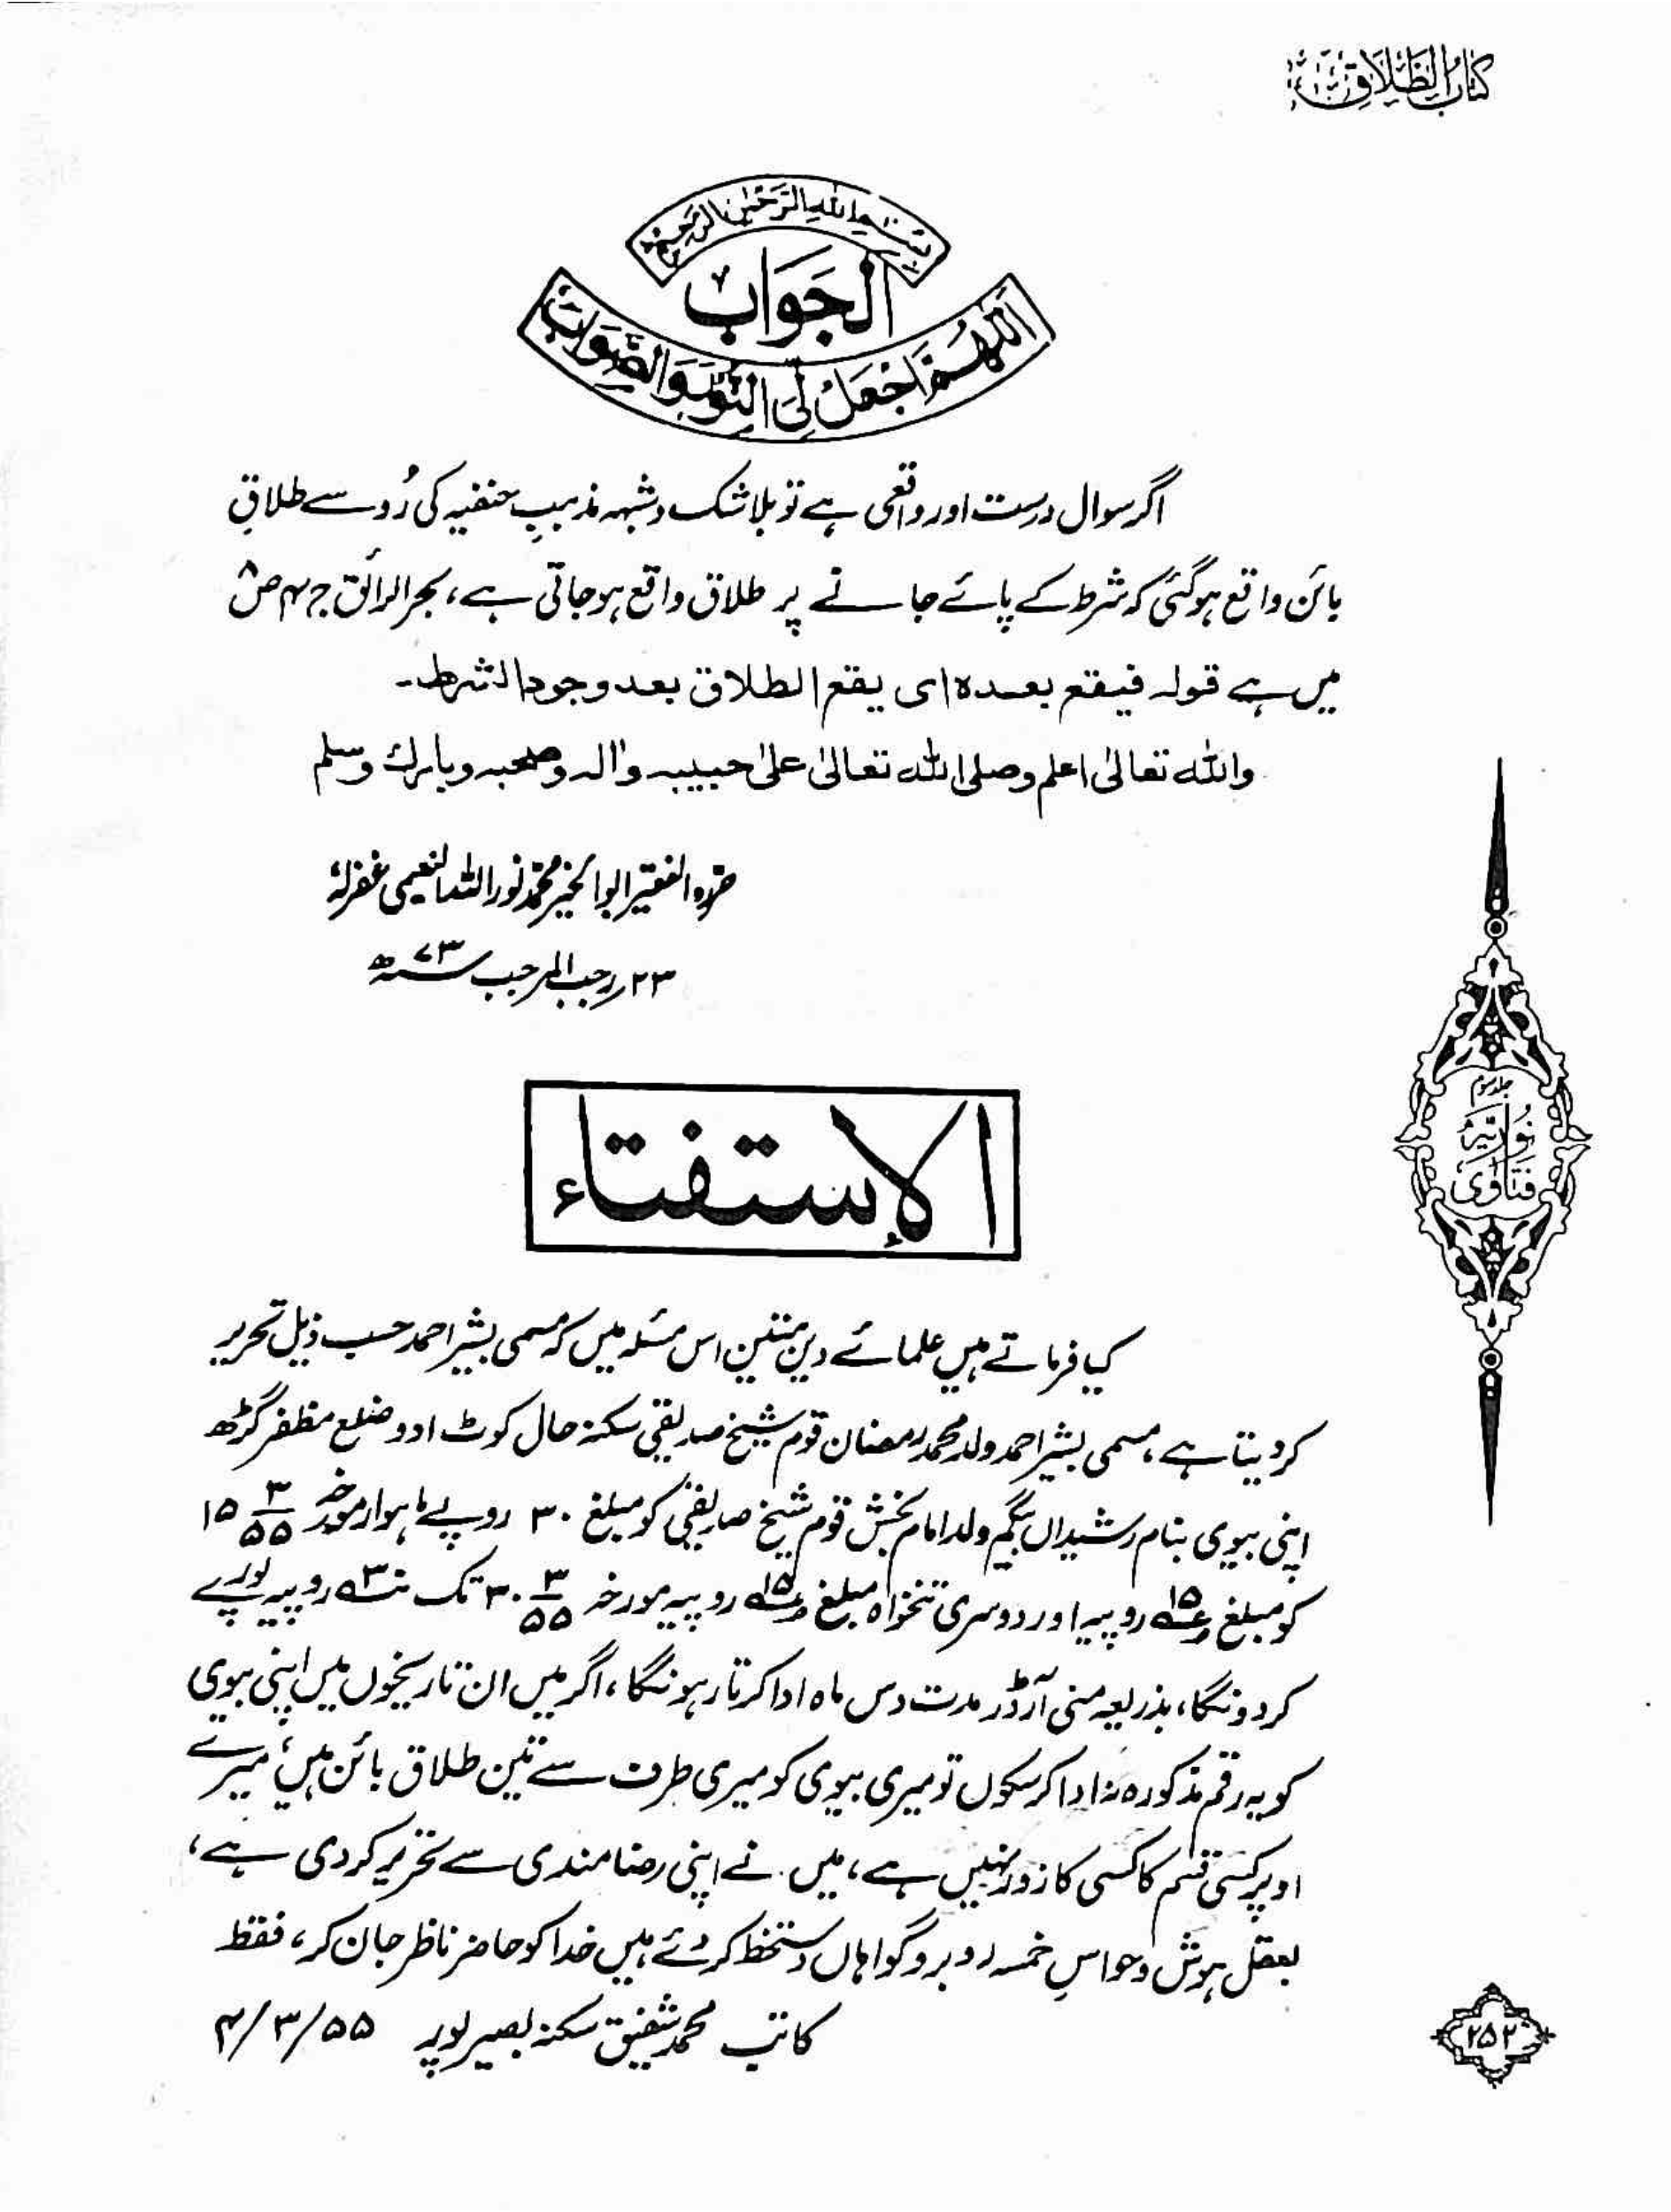 کتاب الطلاق
بسم الله الرحمن الرحيم
الجواب
اللهم اجعل لي النور والصواب
اگر سوال درست اور واقعی ہے تو بلا شک و شبہہ مذہبِ حنفیہ کی رُو سے طلاقِ
بائن واقع ہوگئی کہ شرط کے پائے جانے پر طلاق واقع ہوجاتی ہے، بحر الرائق ج ۴ ص ۸
میں ہے قولہ فیقع بعدہ ای یقع الطلاق بعد وجود الشرط۔
واللہ تعالیٰ اعلم وصلی اللہ تعالیٰ علیٰ حبیبہ واٰلہ وصحبہ وبارك وسلم
حررہ الفقیر ابو الخیر محمد نور اللہ النعیمی غفرلہٗ
۲۳ رجب المرجب ۷۳ھ
الإستفتاء
کیا فرماتے ہیں علمائے دین متین اس مسئلہ میں کہ مسمی بشیر احمد حسب ذیل تحریر
کر دیتا ہے، مسمی بشیر احمد ولد محمد رمضان قوم شیخ صدیقی سکنہ حال کوٹ ادو ضلع مظفر گڑھ
اپنی بیوی بنام رشیداں بیگم ولد امام بخش قوم شیخ صدیقی کو مبلغ ۳۰ روپے ماہوار مورخہ ۱۵ ۳/۵۵
کو مبلغ ۱۵ روپیہ اور دوسری تنخواہ مبلغ ۱۵ روپیہ مورخہ ۳۰ ۳/۵۵ تک ۳۰ روپیہ پورے
کردونگا، بذریعہ منی آرڈر مدت دس ماہ ادا کرتا رہونگا، اگر میں ان تاریخوں میں اپنی بیوی
کو یہ رقم مذکورہ نہ ادا کر سکوں تو میری بیوی کو میری طرف سے تین طلاق بائن ہیں، میرے
اوپر کسی قسم کا کسی کا زور نہیں ہے، میں نے اپنی رضامندی سے تحریر کر دی ہے،
بعقل ہوش و حواسِ خمسہ رو برو گواہاں دستخط کر دئے ہیں خدا کو حاضر ناظر جان کر، فقط
کاتب محمد شفیق سکنہ بصیر پور ۴/۳/۵۵
جلد سوم
نوریہ
فتاویٰ
۲۵۲